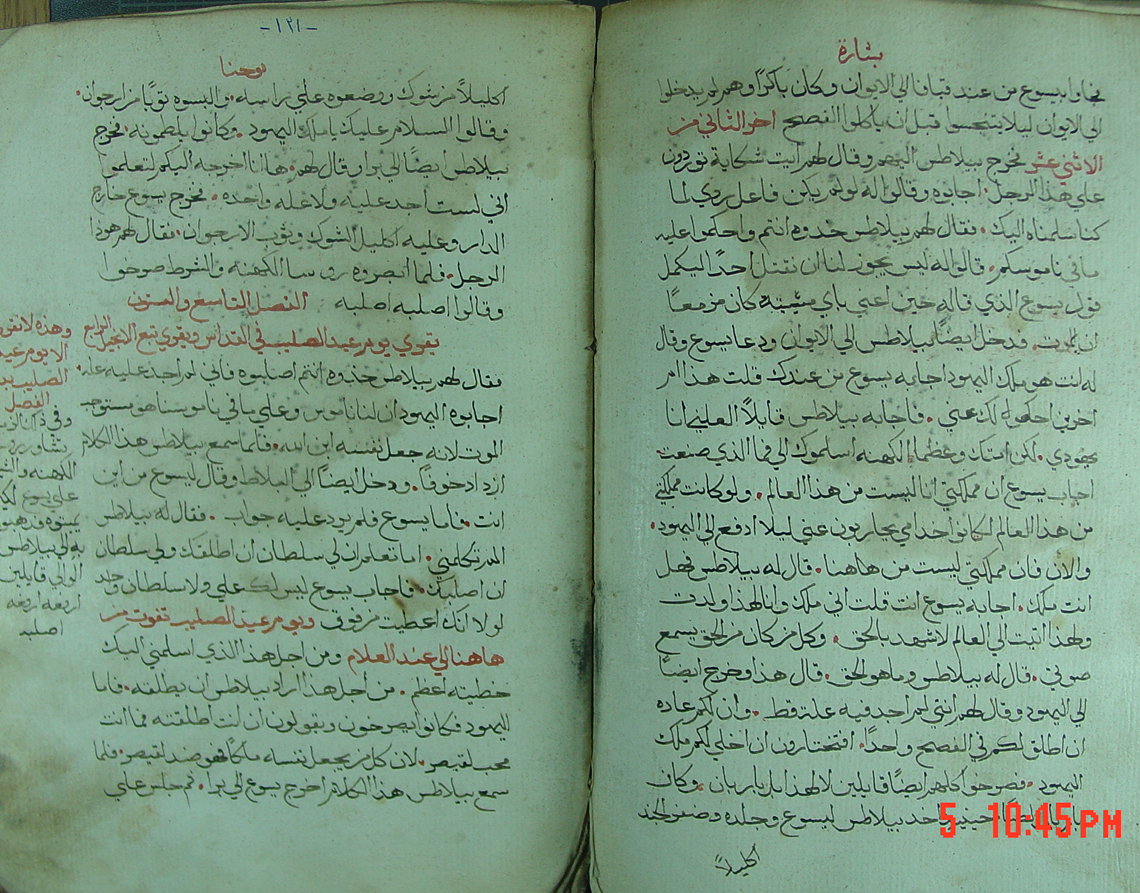 بشارة
فجاوا بيسوع من عند قيافا الي الايوان وكان باكرًا وهم لم يدخلوا
الي الايوان ليلا يتنجسوا قبل ان ياكلوا الفصح اخر الثاني من
الاثني عشر فخرج بيلاطس اليهم وقال لهم ايت شكاية توردون
علي هذا الرجل اجابوه وقالوا له لو لم يكن فاعل ردي لما
كنا سلمناه اليك فقال لهم بيلاطس خدوه انتم واحكموا عليه
ما في ناموسكم قالوا له ليس يجوز لنا ان نقتل احدًا ليكمل
قول يسوع الذي قاله حين اعني باي ميتية كان مزمعًا
ان يموت فدخل ايضًا بيلاطس الي الايوان ودعا يسوع وقال
له انت هو ملك اليهود اجابه يسوع من عندك قلت هذا ام
اخرين احكوا لك عني فاجابه بيلاطس قايلاً العلي انا
يهودي لكن امتك وعظما الكهنه اسلموك الي فما الذي صنعت
اجاب يسوع ان مملكتي انا ليست من هذا العالم ولو كانت مملكتي
من هذا العالم لكانوا خدامي يحاربون عني ليلا ادفع الي اليهود
والان فان مملكتي ليست من هاهنا قال له بيلاطس فهل
انت ملك اجابه يسوع انت قلت اني ملك وانا لهذا ولدت
ولهذا اتيت الي العالم لاشهد بالحق وكل من كان من الحق يسمع
صوتي قال له بيلاطس وما هو الحق قال هذا وخرج ايضًا
الي اليهود وقال لهم انني لم اجد فيه علة قط وان لكم عاده
ان اطلق لكم في الفصح واحدًا افتختارون ان اخلي لكم ملك
اليهود فصرخوا كلهم ايضًا قايلين لا لهذا بل باربان وكان
حينيد اخد بيلاطس ليسوع وجلده وضفر الجند
اكليلاً
-١٢١-
يوحنا
اكليلاً من شوك ووضعوه علي راسه والبسوه توبًا من ارجوان
وقالوا السلام عليك يا ملك اليهود وكانوا يلطمونه فخرج
بيلاطس ايضًا الي برا وقال لهم ها انا اخرجه اليكم لتعلموا
اني لست اجد عليه ولا عله واحده فخرج يسوع خارج
الدار وعليه اكليل الشوك وتوب الارجوان فقال لهم هودا
الرجل فلما ابصروه روسا الكهنه والشرط صرخوا
وقالوا اصلبه اصلبه الفصل التاسع والعشرين
يقري يوم عيد الصليب في القداس ويقري تبع الانجيل الرابع
فقال لهم بيلاطس خذوه انتم اصلبوه فاني لم اجد عليه عله
اجابوه اليهود ان لنا ناموس وعلي ما في ناموسنا هو مستوجب
الموت لانه جعل نفسه ابن الله فلما سمع بيلاطس هذا الكلام
ازداد خوفًا ودخل ايضًا الي البلاط وقال ليسوع من اين
انت فاما يسوع فلم يرد عليه جواب فقال له بيلاطس
الم تكلمني اما تعلم ان لي سلطان ان اطلقك ولي سلطان
ان اصلبك فاجاب يسوع ليس لك علي ولا سلطان واحد
لولا انك اعطيت من فوق ويوم عيد الصليب تفوت من
هاهنا الي عند العلام ومن اجل هذا الذي اسلمني اليك
خطيته اعظم من اجل هذا اراد بيلاطس ان يطلقه فاما
اليهود فكانوا يصرخون ويقولون ان انت اطلقته فما انت
محب لقيصر لان كل من يجعل نفسه ملكًا فهو ضد لقيصر فلما
سمع بيلاطس هذا الكلام اخرج يسوع الي برا ثم جلس علي
الا يوم عيد
الصليب
الفصل
الكهنه
علي يسوع
به الي بيلاطس
الوالي قايلين
ارفعه ارفعه
اصلبه
5 10:45 PM